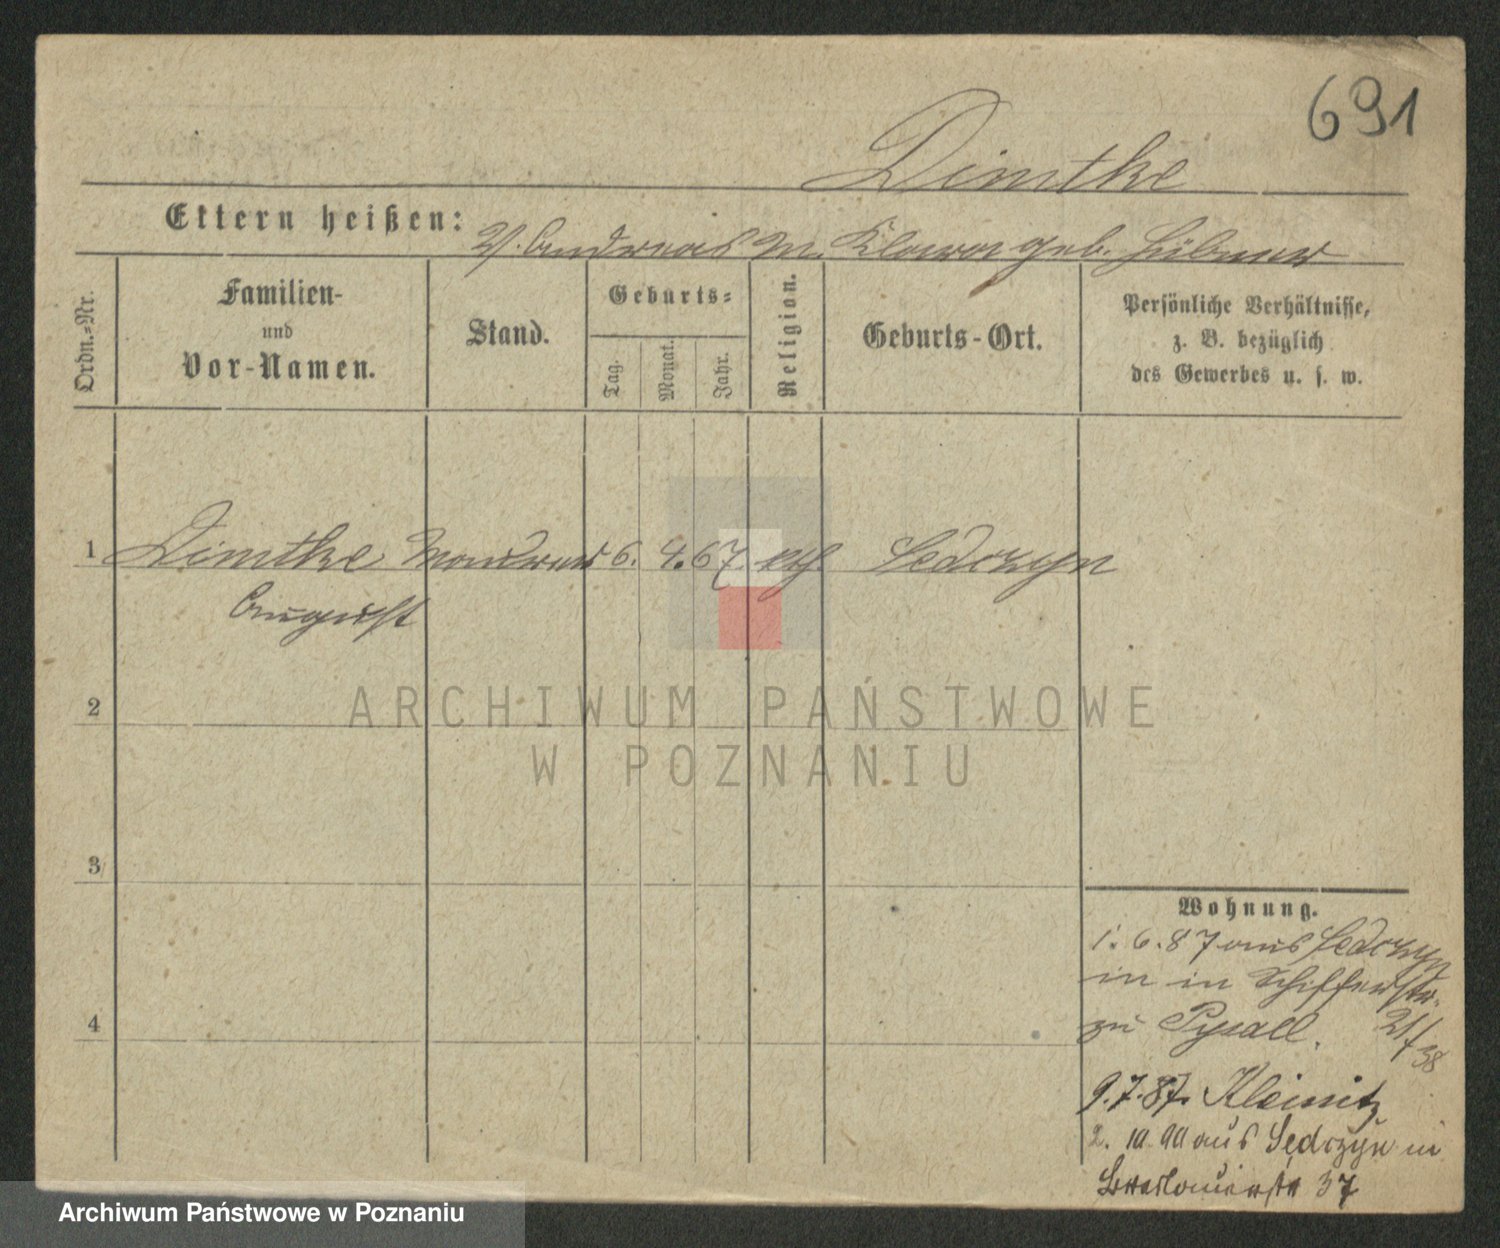 691
Dimtke
Eltern heißen: V. Andreas M. Klara geb. Hübner
Ordn.=Nr.
Familien-
und
Vor-Namen.
Stand.
Geburts=
Tag.
Monat.
Jahr.
Religion.
Geburts-Ort.
Persönliche Verhältnisse,
z. B. bezüglich
des Gewerbes u. s. w.
1 Dimtke Maurer 6. 4. 67 kth Sedczyn
August
2
3
4
Wohnung.
1. 6. 87 aus Sedczyn
in in Schifferstr.
zu 21/38
9.7.87. Kleinitz
2. 10. 90 aus Sędczyn in
37
ARCHIWUM PAŃSTWOWE
W POZNANIU
Archiwum Państwowe w Poznaniu